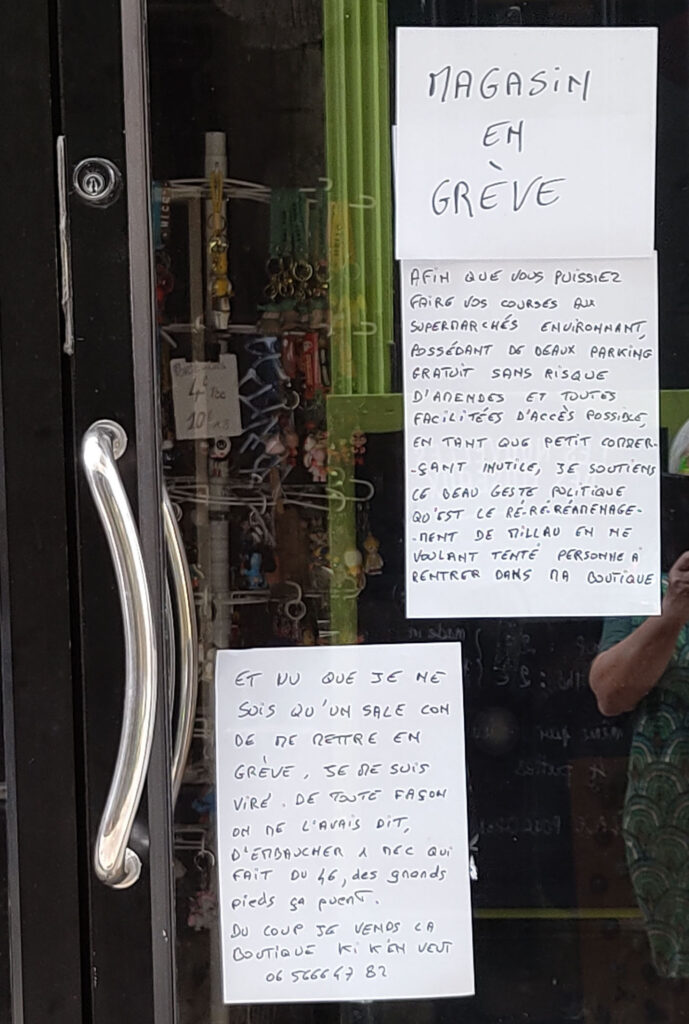 MAGASIN
EN
GRÈVE
AFIN QUE VOUS PUISSIEZ
FAIRE VOS COURSES AUX
SUPERMARCHÉS ENVIRONNANT,
POSSÉDANT DE BEAUX PARKING
GRATUIT SANS RISQUE
D'AMENDES ET TOUTES
FACILITÉES D'ACCÈS POSSIBLE,
EN TANT QUE PETIT COMMER-
-ÇANT INUTILE, JE SOUTIENS
LE BEAU GESTE POLITIQUE
QU'EST LE RÉ-RÉ-RÉAMÉNAGE-
-MENT DE MILLAU EN NE
VOULANT TENTÉ PERSONNE A
RENTRER DANS MA BOUTIQUE
ET VU QUE JE NE
SUIS QU'UN SALE CON
DE ME METTRE EN
GRÈVE, JE ME SUIS
VIRÉ. DE TOUTE FAÇON
ON ME L'AVAIS DIT,
D'EMBAUCHER 1 MEC QUI
FAIT DU 46, des grands
pieds ça puent.
DU COUP JE VENDS LA
BOUTIQUE KI K'EN VEUT
4€
10€